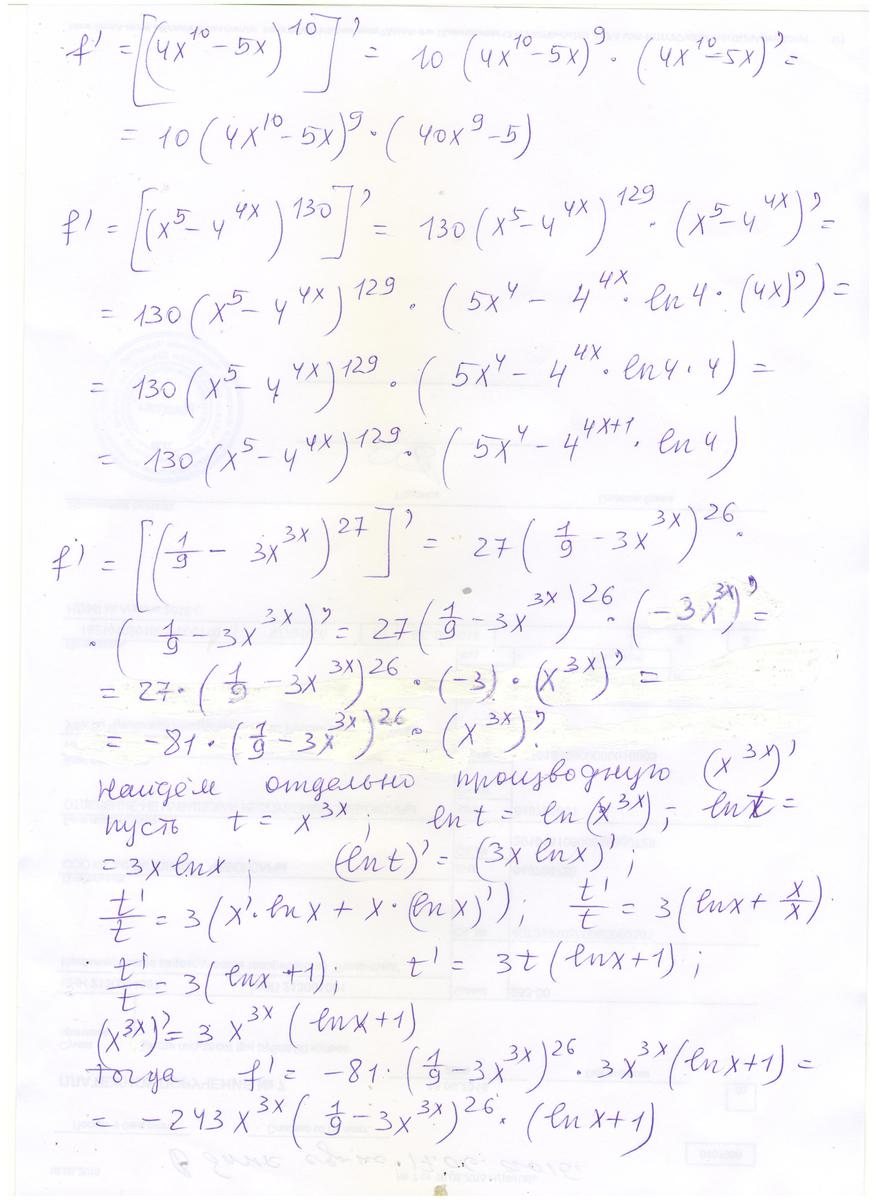 f' = [(4x^10 − 5x)^10]' = 10 (4x^10 − 5x)^9 · (4x^10 − 5x)' =
= 10 (4x^10 − 5x)^9 · (40x^9 − 5)
f' = [(x^5 − 4^4x)^130]' = 130 (x^5 − 4^4x)^129 · (x^5 − 4^4x)' =
= 130 (x^5 − 4^4x)^129 · (5x^4 − 4^4x · ln4 · (4x)') =
= 130 (x^5 − 4^4x)^129 · (5x^4 − 4^4x · ln4 · 4) =
= 130 (x^5 − 4^4x)^129 · (5x^4 − 4^4x+1 · ln4)
f' = [(1/9 − 3x^3x)^27]' = 27 (1/9 − 3x^3x)^26 ·
· (1/9 − 3x^3x)' = 27 (1/9 − 3x^3x)^26 · (−3x^3x)' =
= 27 · (1/9 − 3x^3x)^26 · (−3) · (x^3x)' =
= −81 · (1/9 − 3x^3x)^26 · (x^3x)'.
найдём отдельно производную (x^3x)'
пусть t = x^3x; ln t = ln(x^3x); ln t =
= 3x ln x; (ln t)' = (3x ln x)';
t'/t = 3(x' · ln x + x · (ln x)'); t'/t = 3(ln x + x/x).
t'/t = 3(ln x + 1); t' = 3t (ln x + 1);
(x^3x)' = 3x^3x (ln x + 1)
тогда f' = −81 · (1/9 − 3x^3x)^26 · 3x^3x (ln x + 1) =
= −243x^3x (1/9 − 3x^3x)^26 · (ln x + 1)